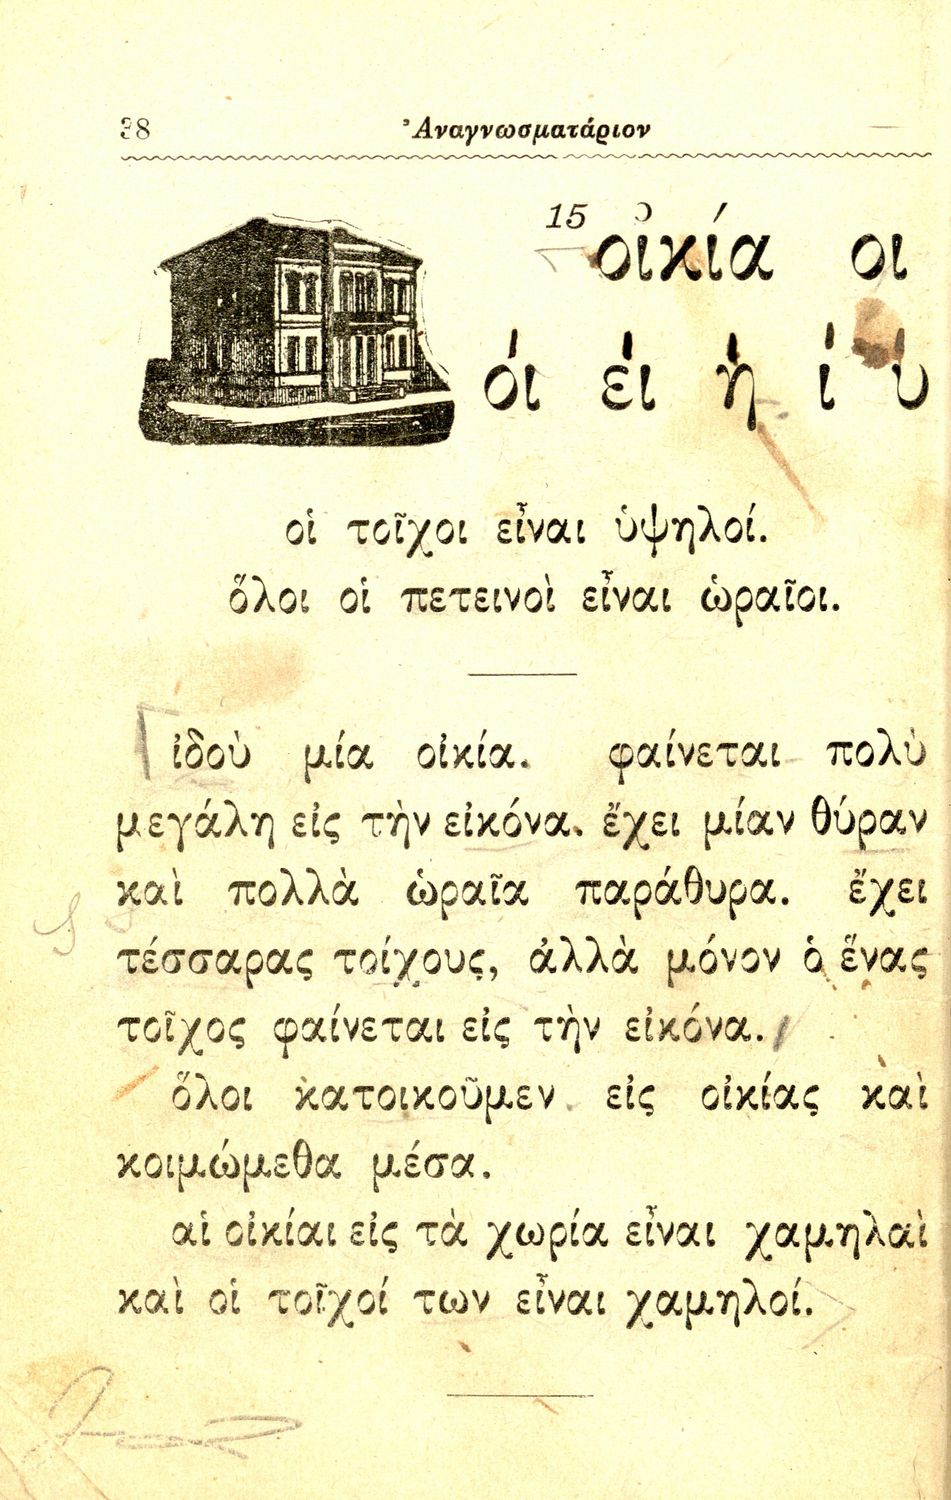 38 Ἀναγνωσματάριον
15 οἰκία οι
οί εί ή ί ύ
οἱ τοῖχοι εἶναι ὑψηλοί.
ὅλοι οἱ πετεινοὶ εἶναι ὡραῖοι.
ἰδοὺ μία οἰκία. φαίνεται πολὺ
μεγάλη εἰς τὴν εἰκόνα. ἔχει μίαν θύραν
καὶ πολλὰ ὡραῖα παράθυρα. ἔχει
τέσσαρας τοίχους, ἀλλὰ μόνον ὁ ἕνας
τοῖχος φαίνεται εἰς τὴν εἰκόνα.
ὅλοι κατοικοῦμεν εἰς οἰκίας καὶ
κοιμώμεθα μέσα.
αἱ οἰκίαι εἰς τὰ χωρία εἶναι χαμηλαὶ
καὶ οἱ τοῖχοί των εἶναι χαμηλοί.